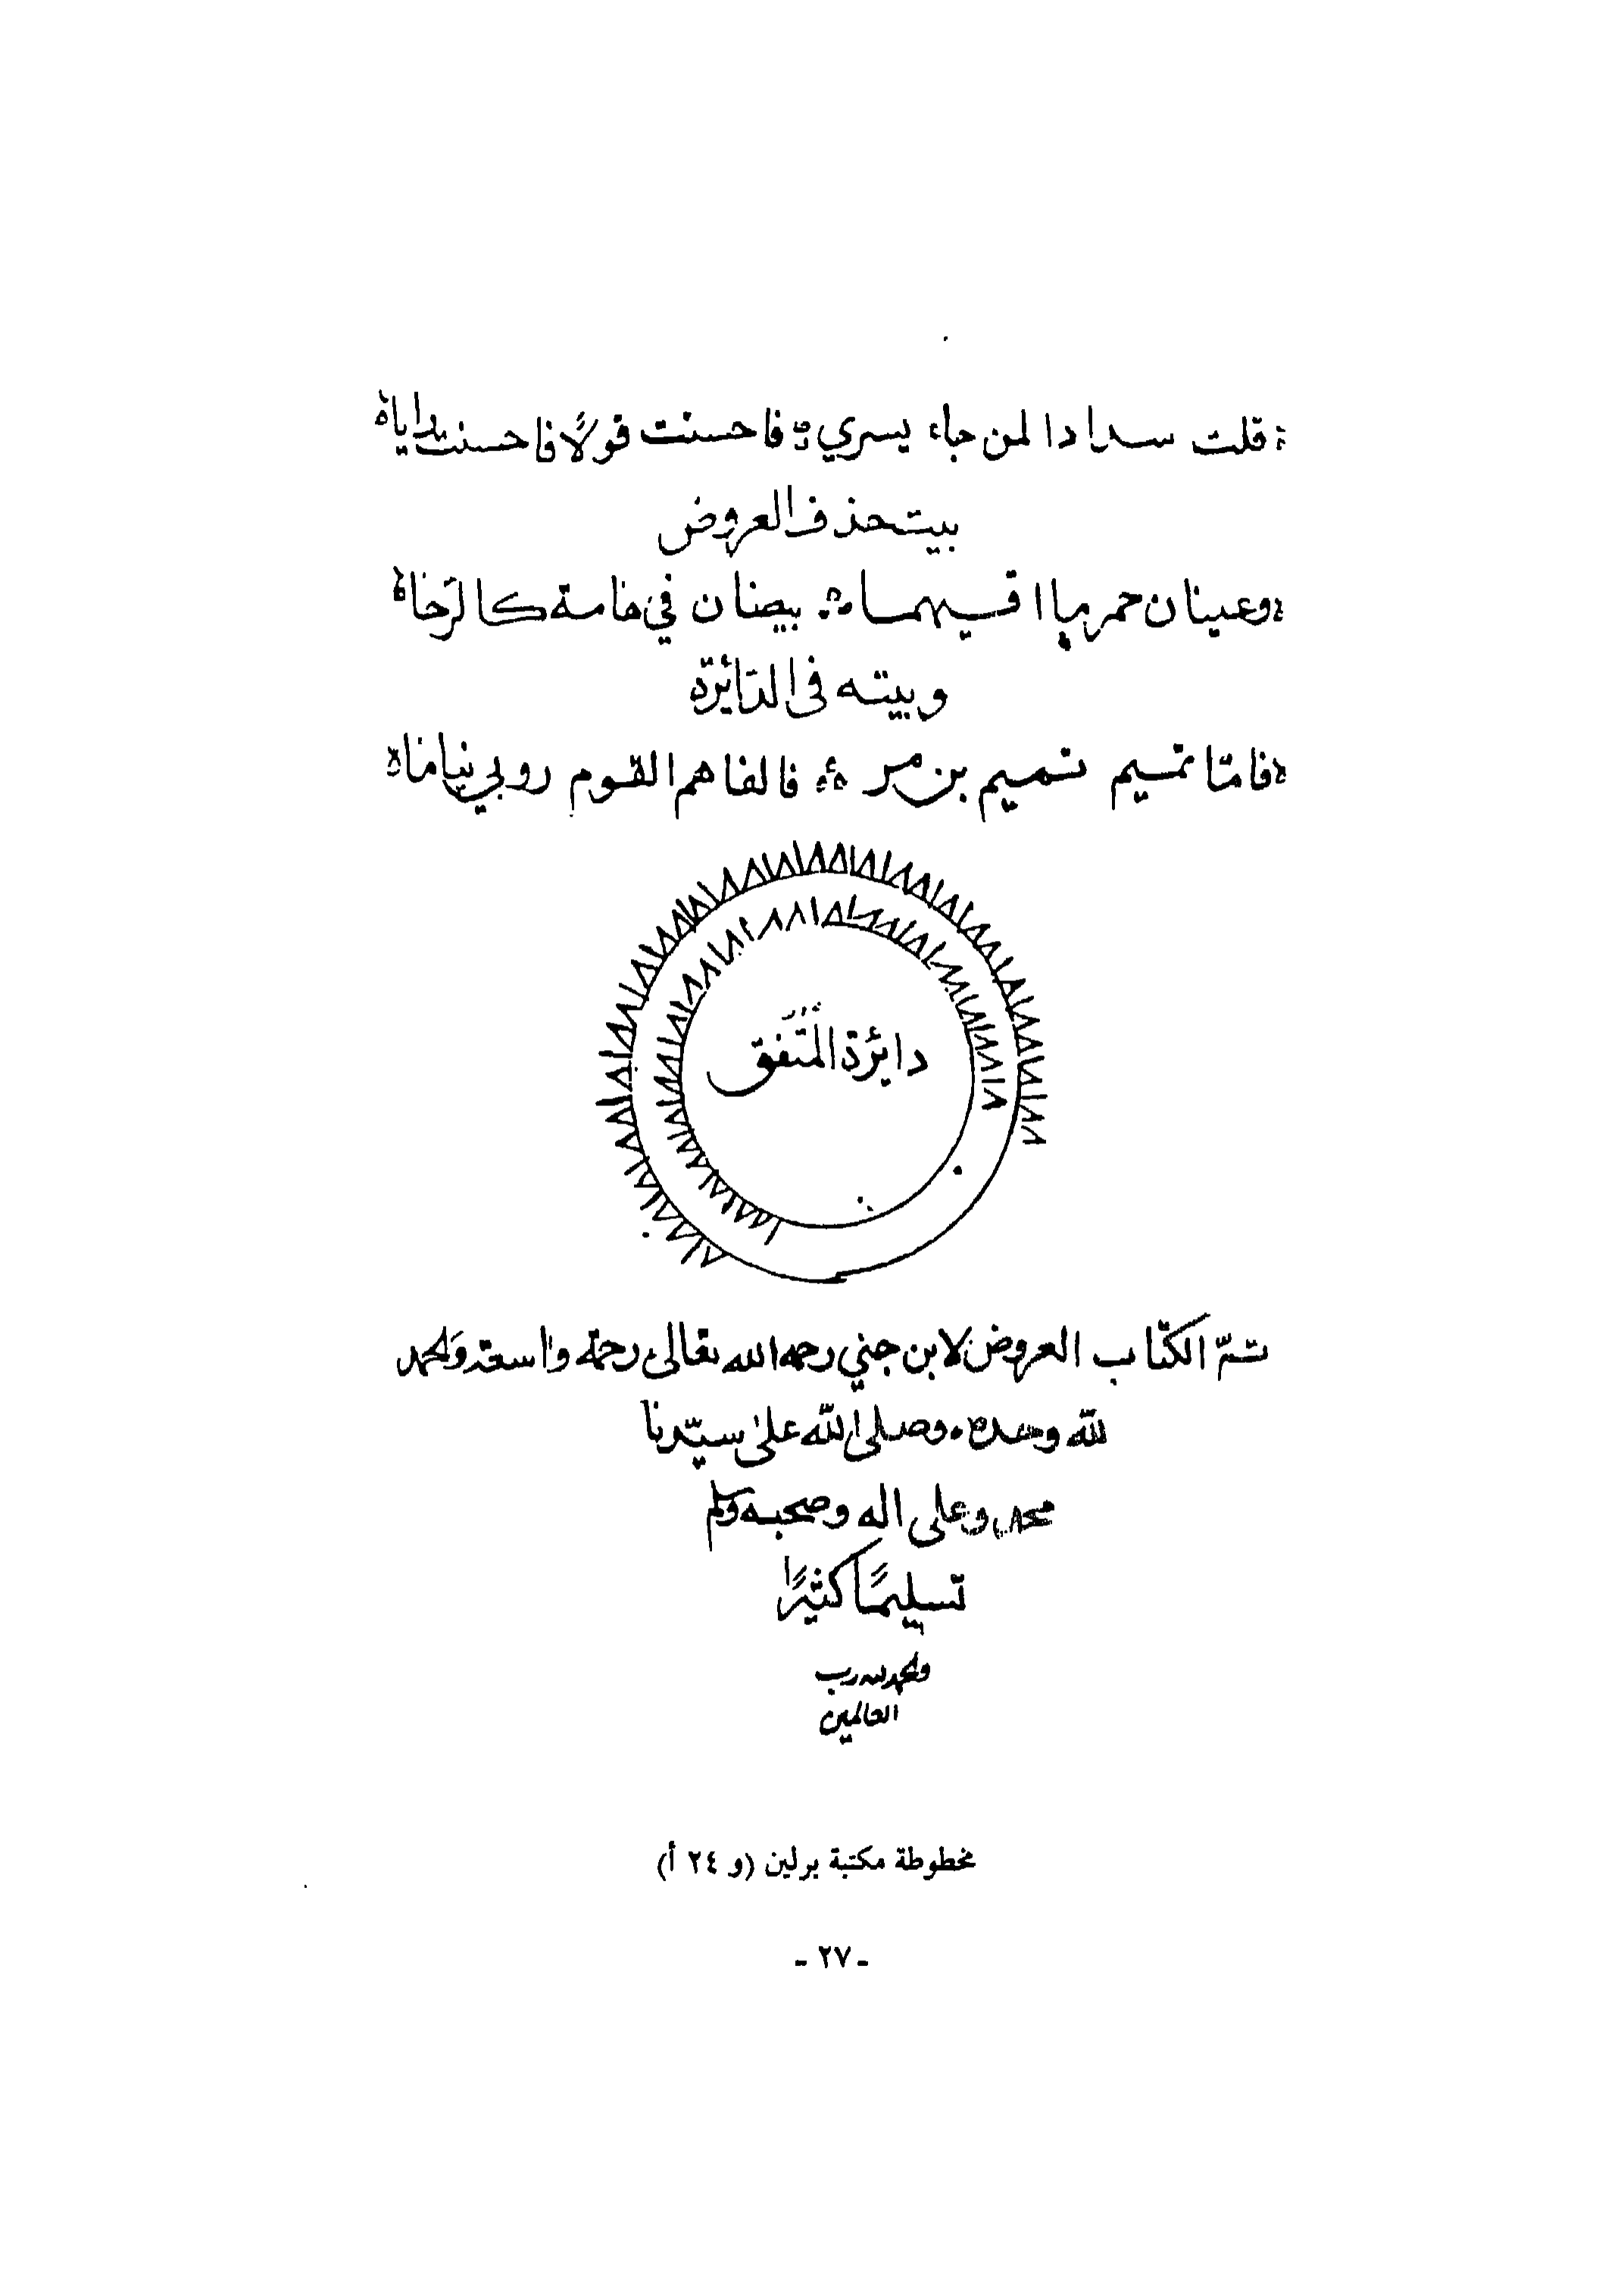 قلت سدادا لمن جاء يسري فاحسنت قولًا فاحسنت رايا
بيت حذف العروض
وعينان حمر ماا قيهما بيصنان في هامة كالرخا
وبيته في الدّائرة
فامّا تميم تميم بن مر فالفاهم القوم روبي نياما
دائرة المتّفق
تمّ الكتاب العروض لابن جني رحمه الله تعالى رحمة واسعة والحمد
للّه وحده وصلى اللّه على سيّدنا
محمد وعلى اله وصحبه وسلم
تسليمًا كثيرًا
والحمد لله رب
العالمين
مخطوطة مكتبة برلين (و ٢٤ أ)
- ٢٧ -